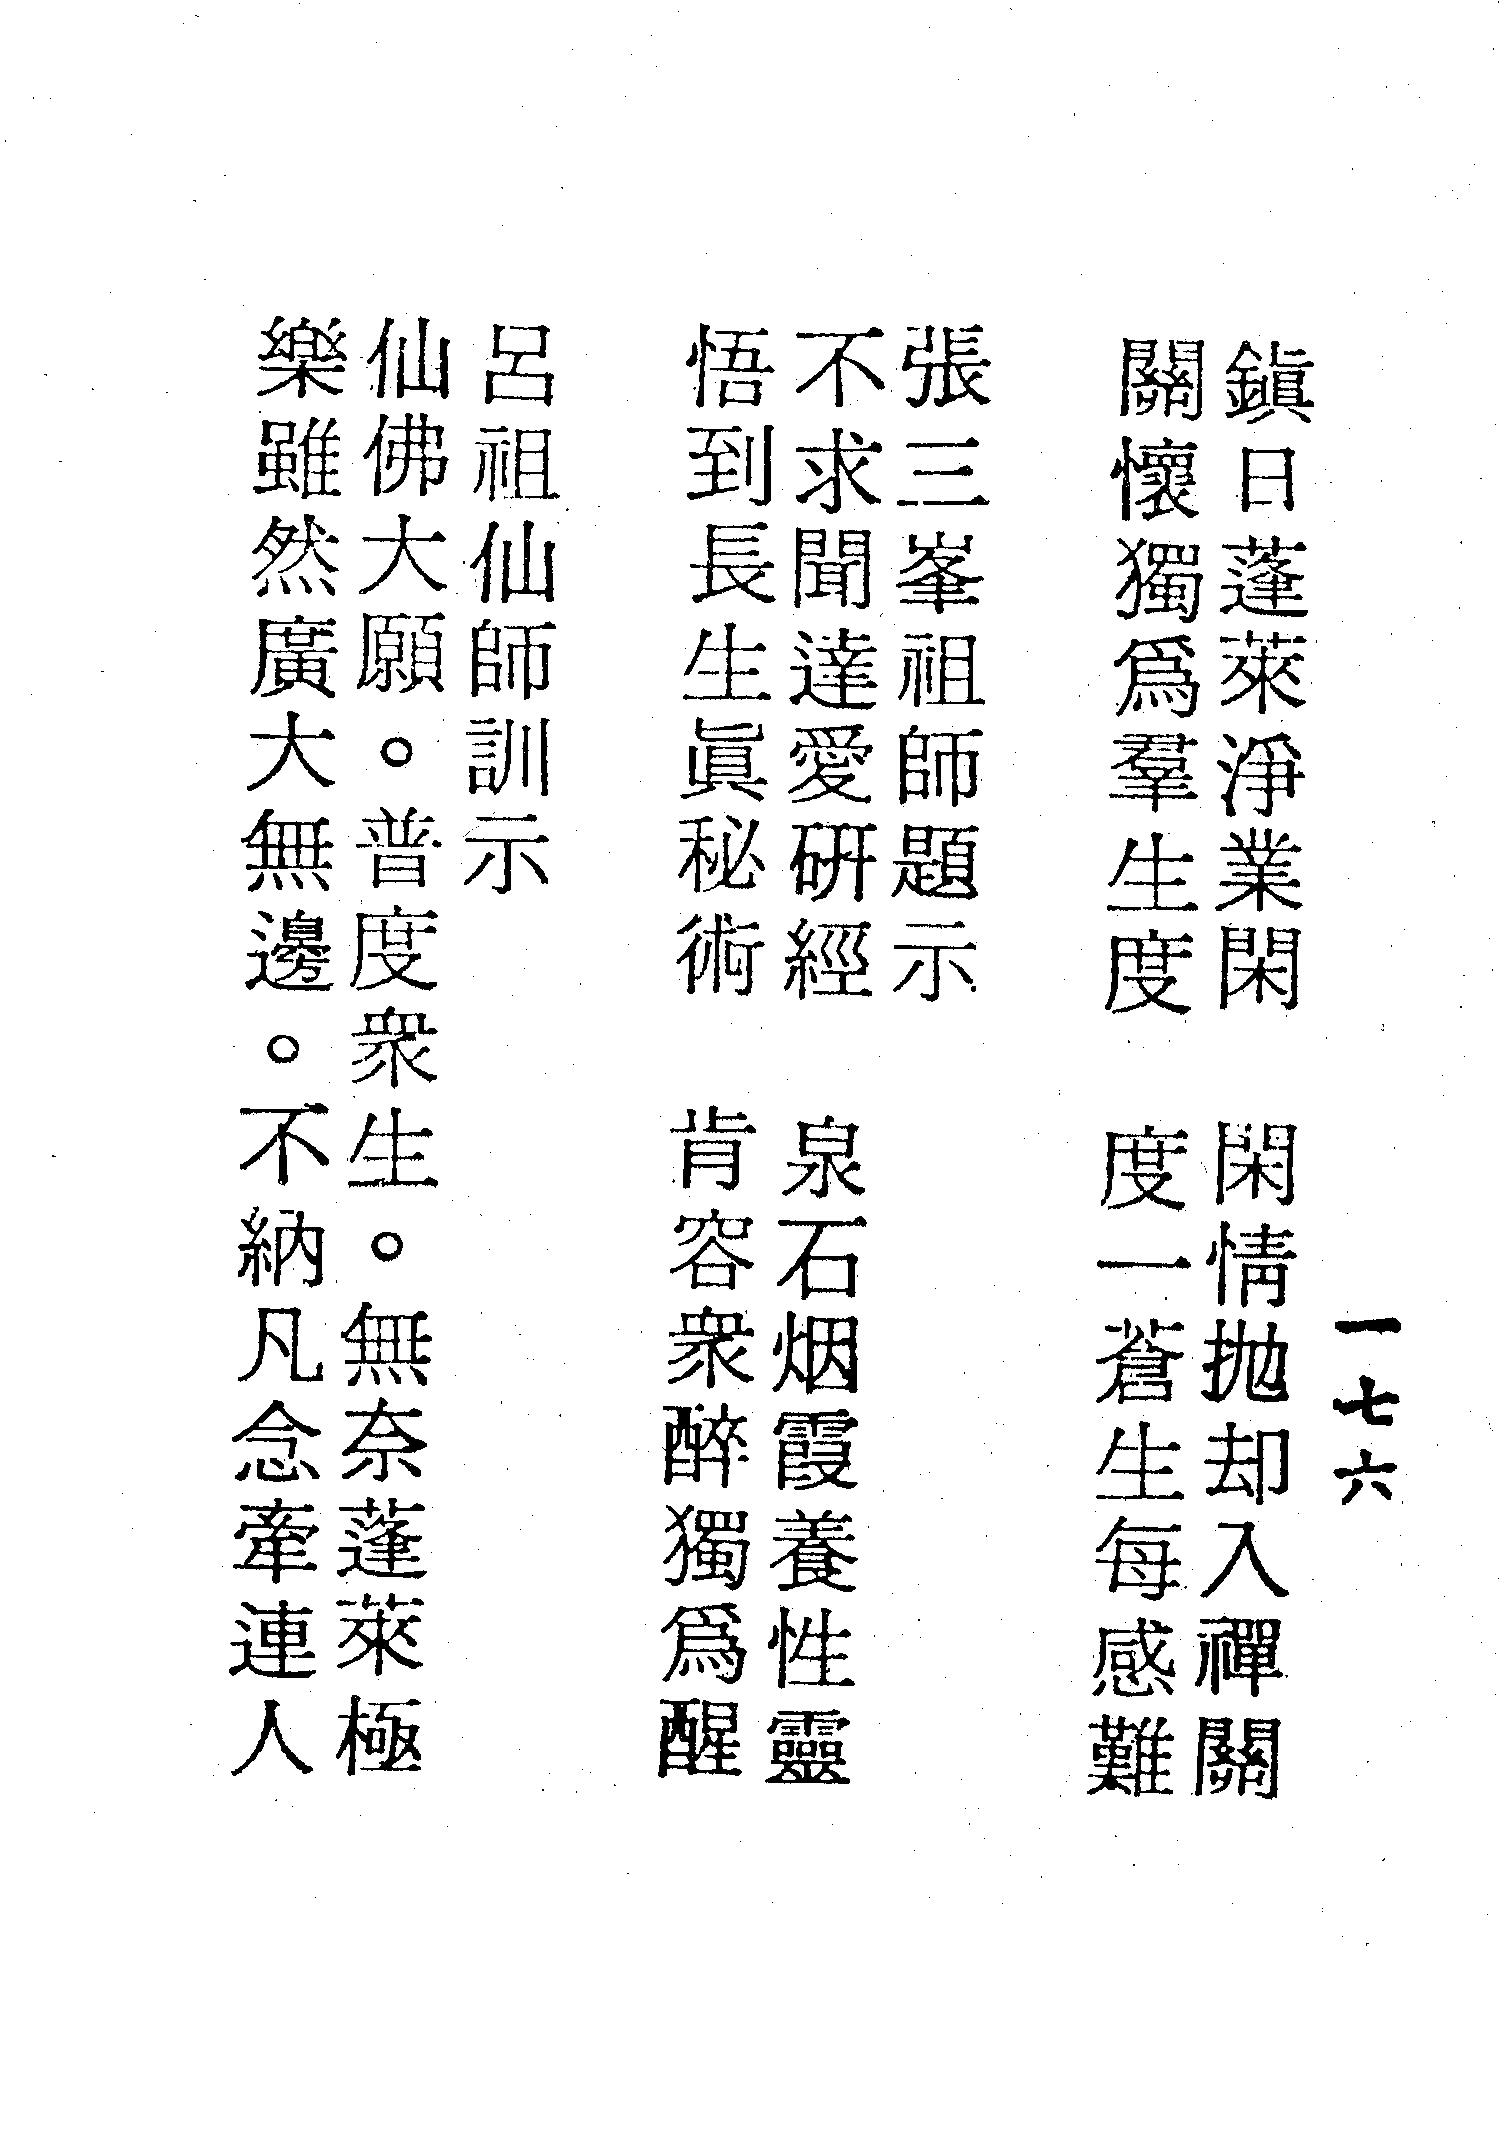 一七六
鎭日蓬萊淨業閑　閑情拋却入禪關
關懷獨爲羣生度　度一蒼生每感難
張三峯祖師題示
不求聞達愛硏經　泉石烟霞養性靈
悟到長生眞秘術　肯容衆醉獨爲醒
呂祖仙師訓示
仙佛大願。普度衆生。無奈蓬萊極
樂雖然廣大無邊。不納凡念牽連人